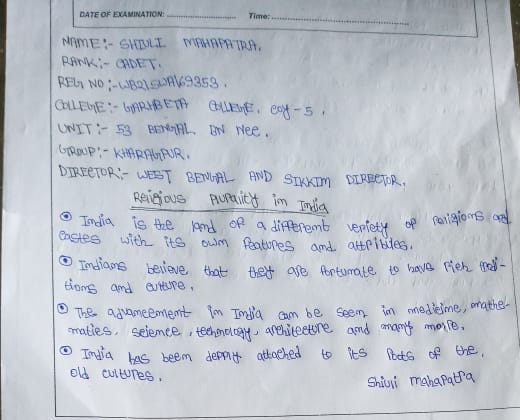 DATE OF EXAMINATION: Time:
NAME:- SHIULI MAHAPATRA.
RANK:- CADET.
REG NO:- WB21SWA169353.
COLLEGE:- GARHBETA COLLEGE, coy-5.
UNIT:- 53 BENGAL BN Nec.
GROUP:- KHARAGPUR.
DIRECTOR:- WEST BENGAL AND SIKKIM DIRECTOR.
Religious Plurality in India
India is the land of a different veriety of religions and
castes with its own features and attribles.
Indians believe that they are fortunate to have rich tradi-
tions and culture.
The advancement in India can be seen in medicine, mathe-
matics, science, technology, architecture and many more.
India has been deeply attached to its roots of the,
old cultures.
Shiuli Mahapatra